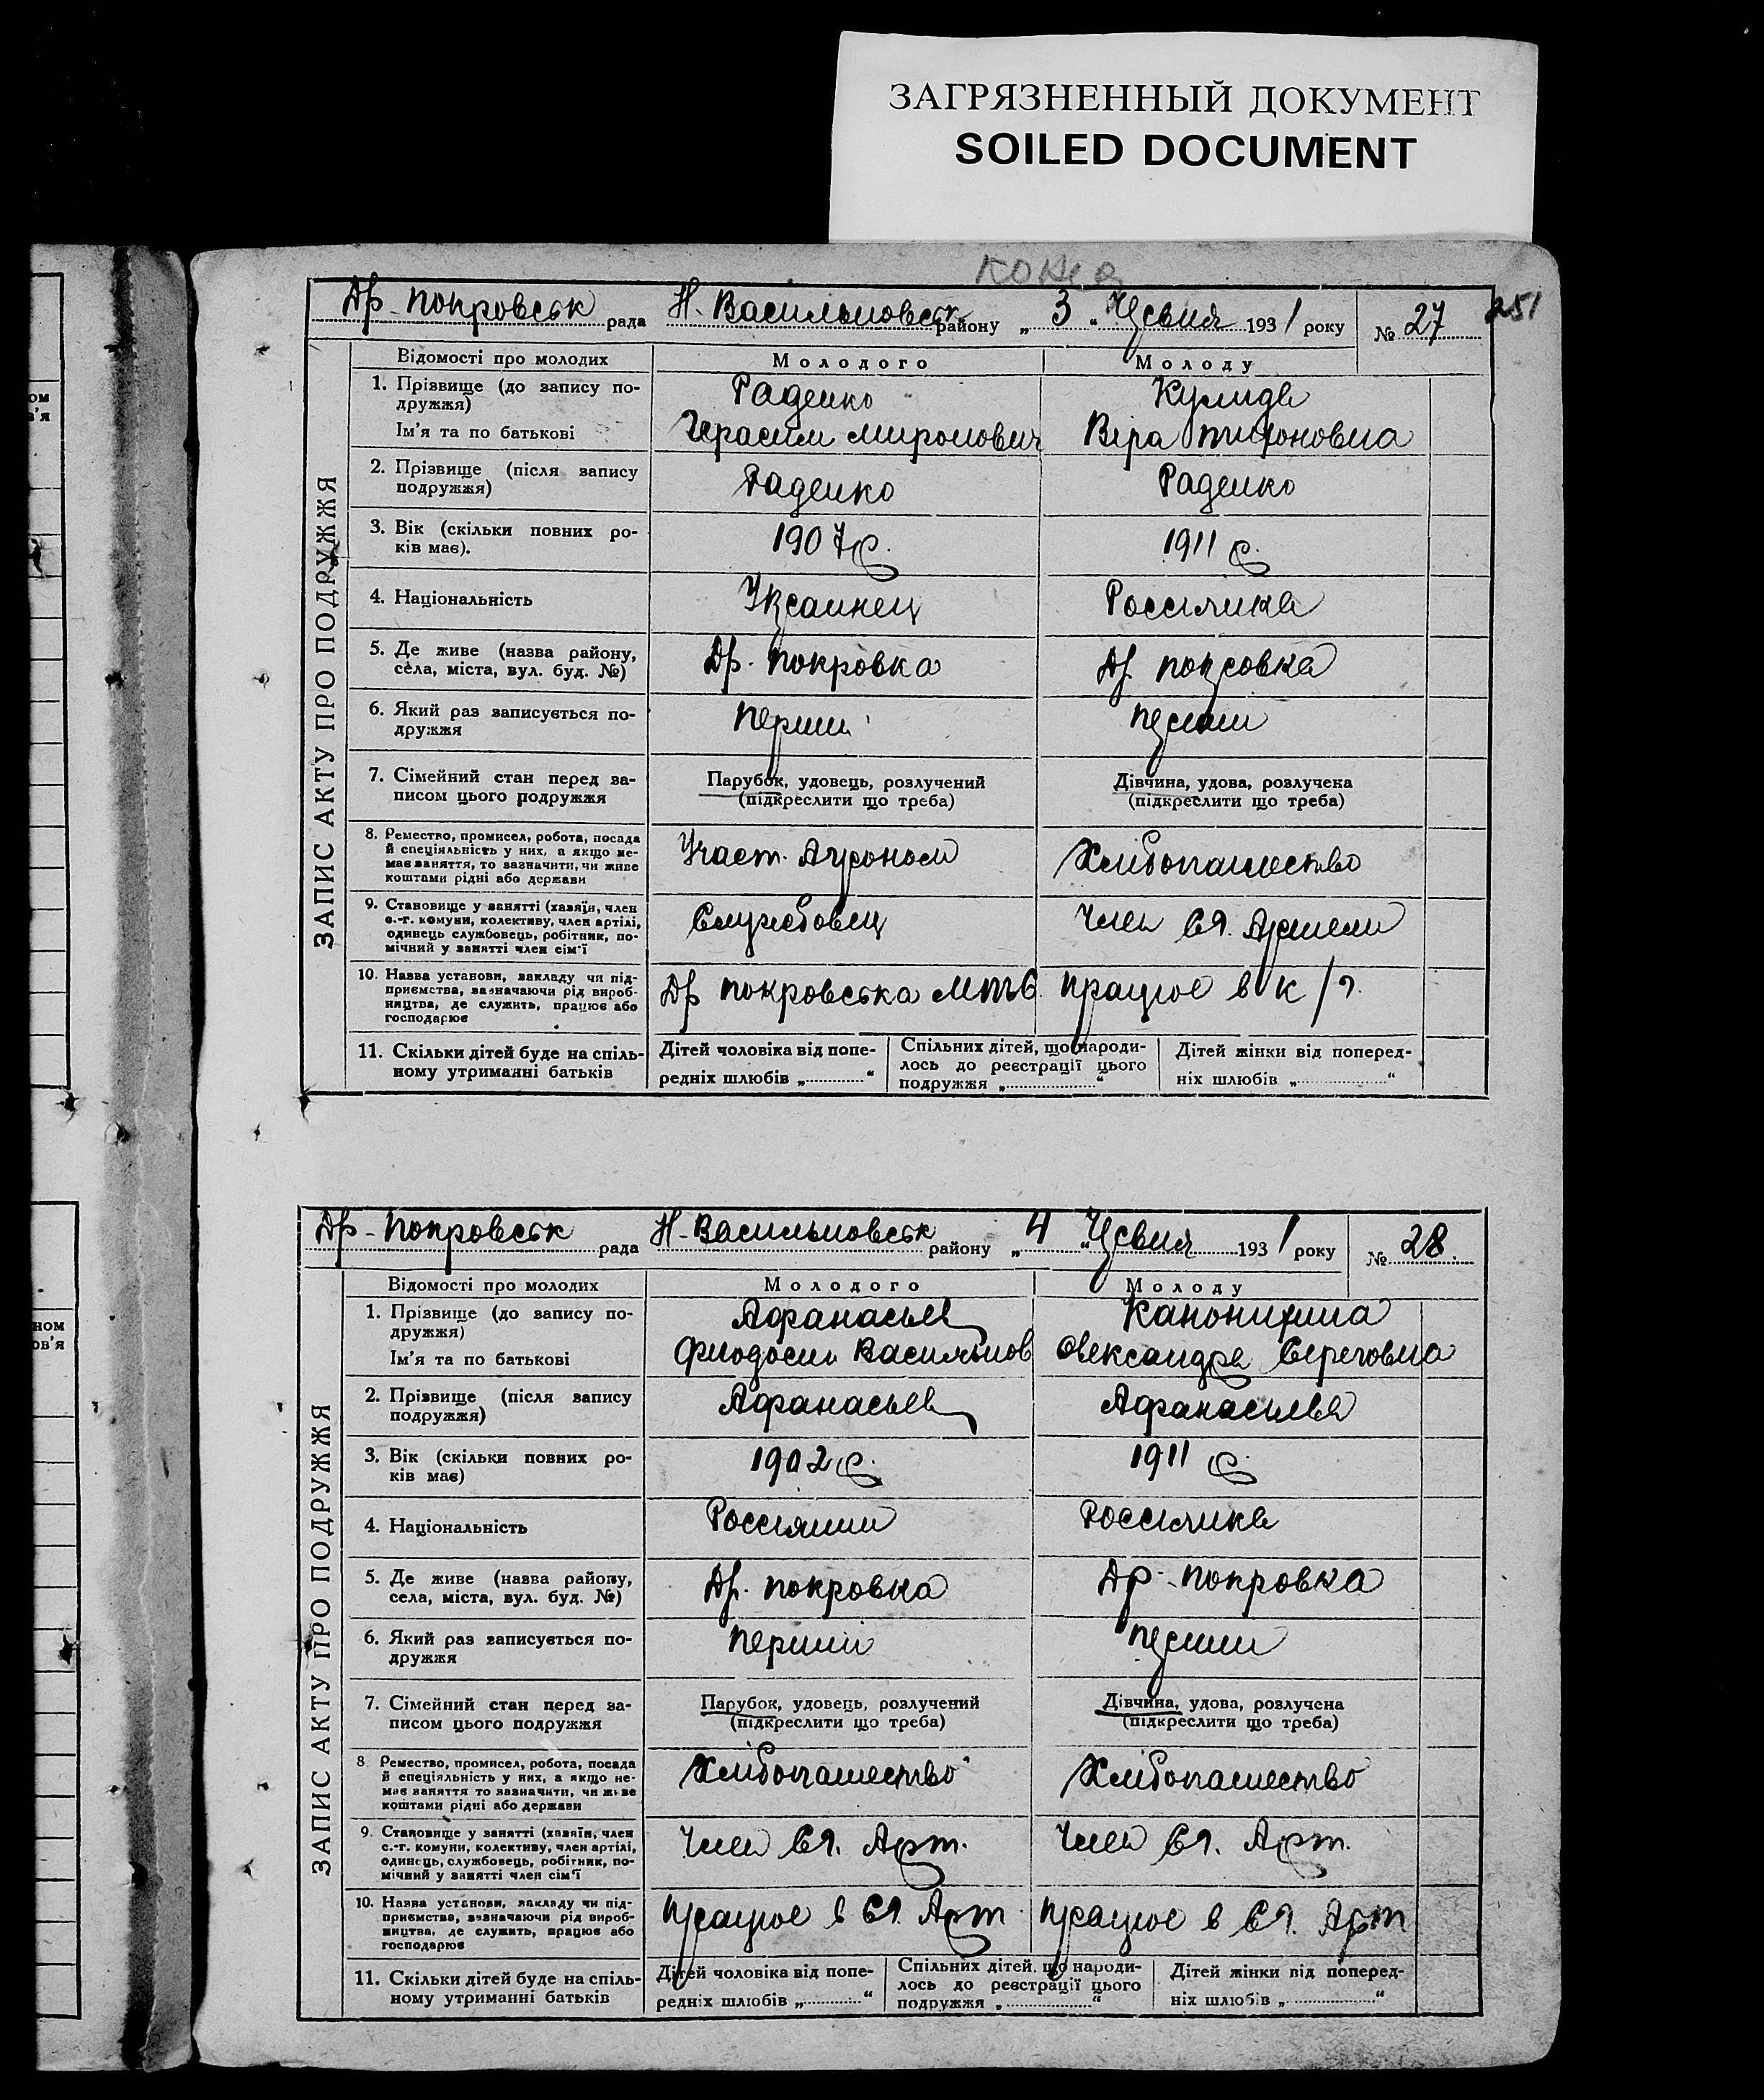 ЗАГРЯЗНЕННЫЙ ДОКУМЕНТ
SOILED DOCUMENT
Др-покровськ рада Н. Васильновськ району „ 3 “ Червня 1931 року № 27 251
Відомості про молодих Молодого Молоду
ЗАПИС АКТУ ПРО ПОДРУЖЖЯ
1. Прізвище (до запису по- Раденко
дружжя)
Ім'я та по батькові Герасим Миронович Віра Тихоновна
2. Прізвище (після запису Раденко Раденко
подружжя)
3. Вік (скільки повних ро- 1907 р. 1911 р.
ків має).
4. Національність Украинец Россіянка
5. Де живе (назва району, Др. покровка Др. покровка
села, міста, вул. буд. №)
6. Який раз записується по- перший перший
дружжя
7. Сімейний стан перед за- Парубок, удовець, розлучений Дівчина, удова, розлучека
писом цього подружжя (підкреслити що треба) (підкреслити що треба)
8. Ремество, промисел, робота, посада Участ. Агроном Хлібопашество
й спеціяльність у них, а якщо не-
має заняття, то зазначити, чи живе
коштами рідні або держави
9. Становище у занятті (хазяїн, член Службовец Член СГ. Артели
с.-г. комуни, колективу, член артілі,
одинець службовець, робітник, по-
мічний у занятті член сім'ї
10. Назва установи, закладу чи під- Др покровська МТС. працює в к/г.
приємства, зазначаючи рід вироб-
ництва, де служить, працює або
господарює
11. Скільки дітей буде на спіль- Дітей чоловіка від попе- Спільних дітей, що народи- Дітей жінки від поперед-
ному утриманні батьків редніх шлюбів „ “ лось до реєстрації цього подружжя „ “ ніх шлюбів „ “
Др-покровськ рада Н-Васильновськ району „ 4 “ Червня 1931 року № 28.
Відомості про молодих Молодого Молоду
ЗАПИС АКТУ ПРО ПОДРУЖЖЯ
1. Прізвище (до запису по- Афанасьев
дружжя)
Ім'я та по батькові Феодосий Васильнов Олександра Сергеовна
2. Прізвище (після запису Афанасьев Афанасьева
подружжя)
3. Вік (скільки повних ро- 1902 р. 1911 р.
ків має)
4. Національність Россіянин Россіянка
5. Де живе (назва району, Др. покровка Др-покровка
села, міста, вул. буд. №)
6. Який раз записується по- перший перший
дружжя
7. Сімейний стан перед за- Парубок, удовець, розлучений Дівчина, удова, розлучена
писом цього подружжя (підкреслити що треба) (підкреслити що треба)
8 Ремество, промисел, робота, посада Хлібопашество Хлібопашество
й спеціяльність у них, а якщо не-
має заняття то зазначити, чи живе
коштами рідні або держави
9. Становище у занятті (хазяїн, член Член СГ. Арт. Член СГ. Арт.
с.-г. комуни, колективу, член артілі,
одинець, службовець, робітник, по-
мічний у занятті член сім'ї
10. Назва установи, закладу чи під- працює в СГ. Арт. працює в СГ. Арт
приємства, зазначаючи рід вироб-
ництва, де служить, працює або
господарює
11. Скільки дітей буде на спіль- Дітей чоловіка від попе- Спільних дітей, що народи- Дітей жінки від поперед-
ному утриманні батьків редніх шлюбів „ “ лось до реєстрації цього подружжя „ “ ніх шлюбів „ “